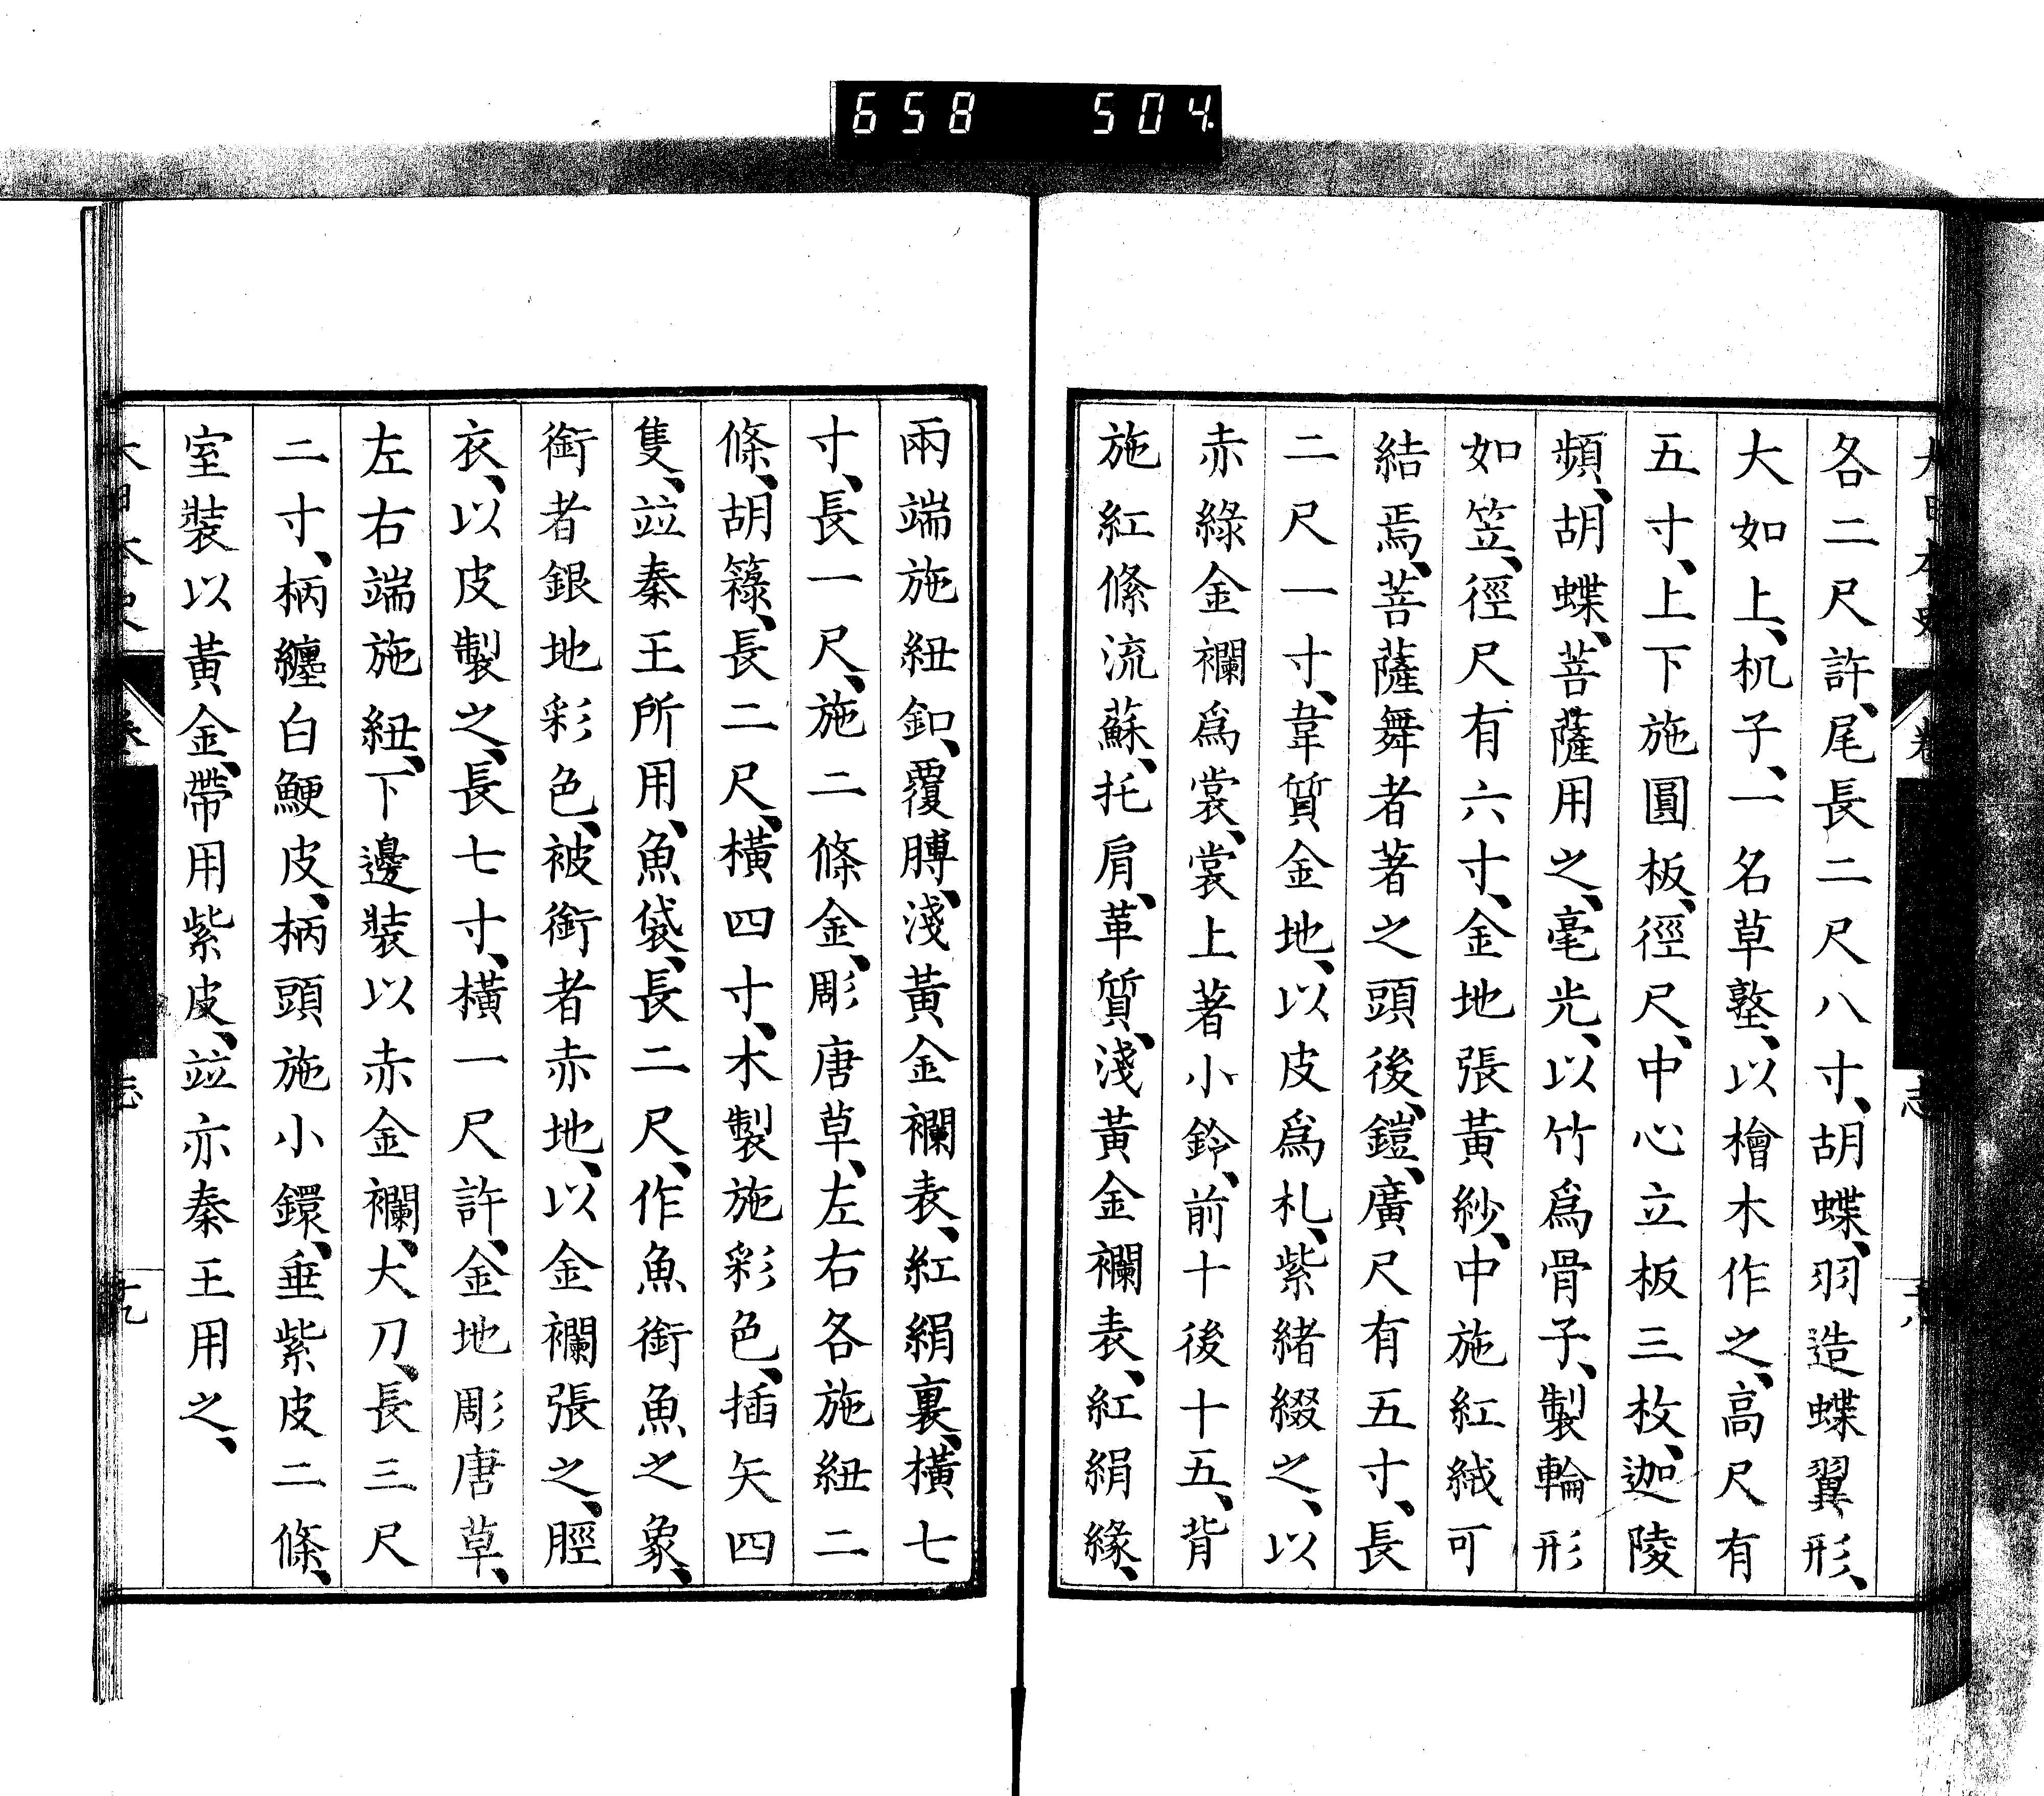 658 504
各二尺許、尾長二尺八寸、胡蝶、羽造蝶翼形、
大如上、机子、一名草墪、以檜木作之、高尺有
五寸、上下施圓板、徑尺、中心立板三枚、迦陵
頻、胡蝶、菩薩用之、毫光、以竹爲骨子、製輪形
如笠、徑尺有六寸、金地張黃紗、中施紅絨可
結焉、菩薩舞者著之頭後、鎧、廣尺有五寸、長
二尺一寸、韋質金地、以皮爲札、紫緒綴之、以
赤綠金襴爲裳、裳上著小鈴、前十後十五、背
施紅絛流蘇、托肩、革質、淺黃金襴表、紅絹緣、
兩端施紐釦、覆膊、淺黃金襴表、紅絹裏、橫七
寸、長一尺、施二條金、彫唐草、左右各施紐二
條、胡籙、長二尺、橫四寸、木製施彩色、插矢四
隻、竝秦王所用、魚袋、長二尺、作魚銜魚之象、
銜者銀地彩色、被銜者赤地、以金襴張之、脛
衣、以皮製之、長七寸、橫一尺許、金地彫唐草、
左右端施紐、下邊裝以赤金襴、大刀、長三尺
二寸、柄纏白鯁皮、柄頭施小鐶、垂紫皮二條、
室裝以黃金、帶用紫皮、竝亦秦王用之、